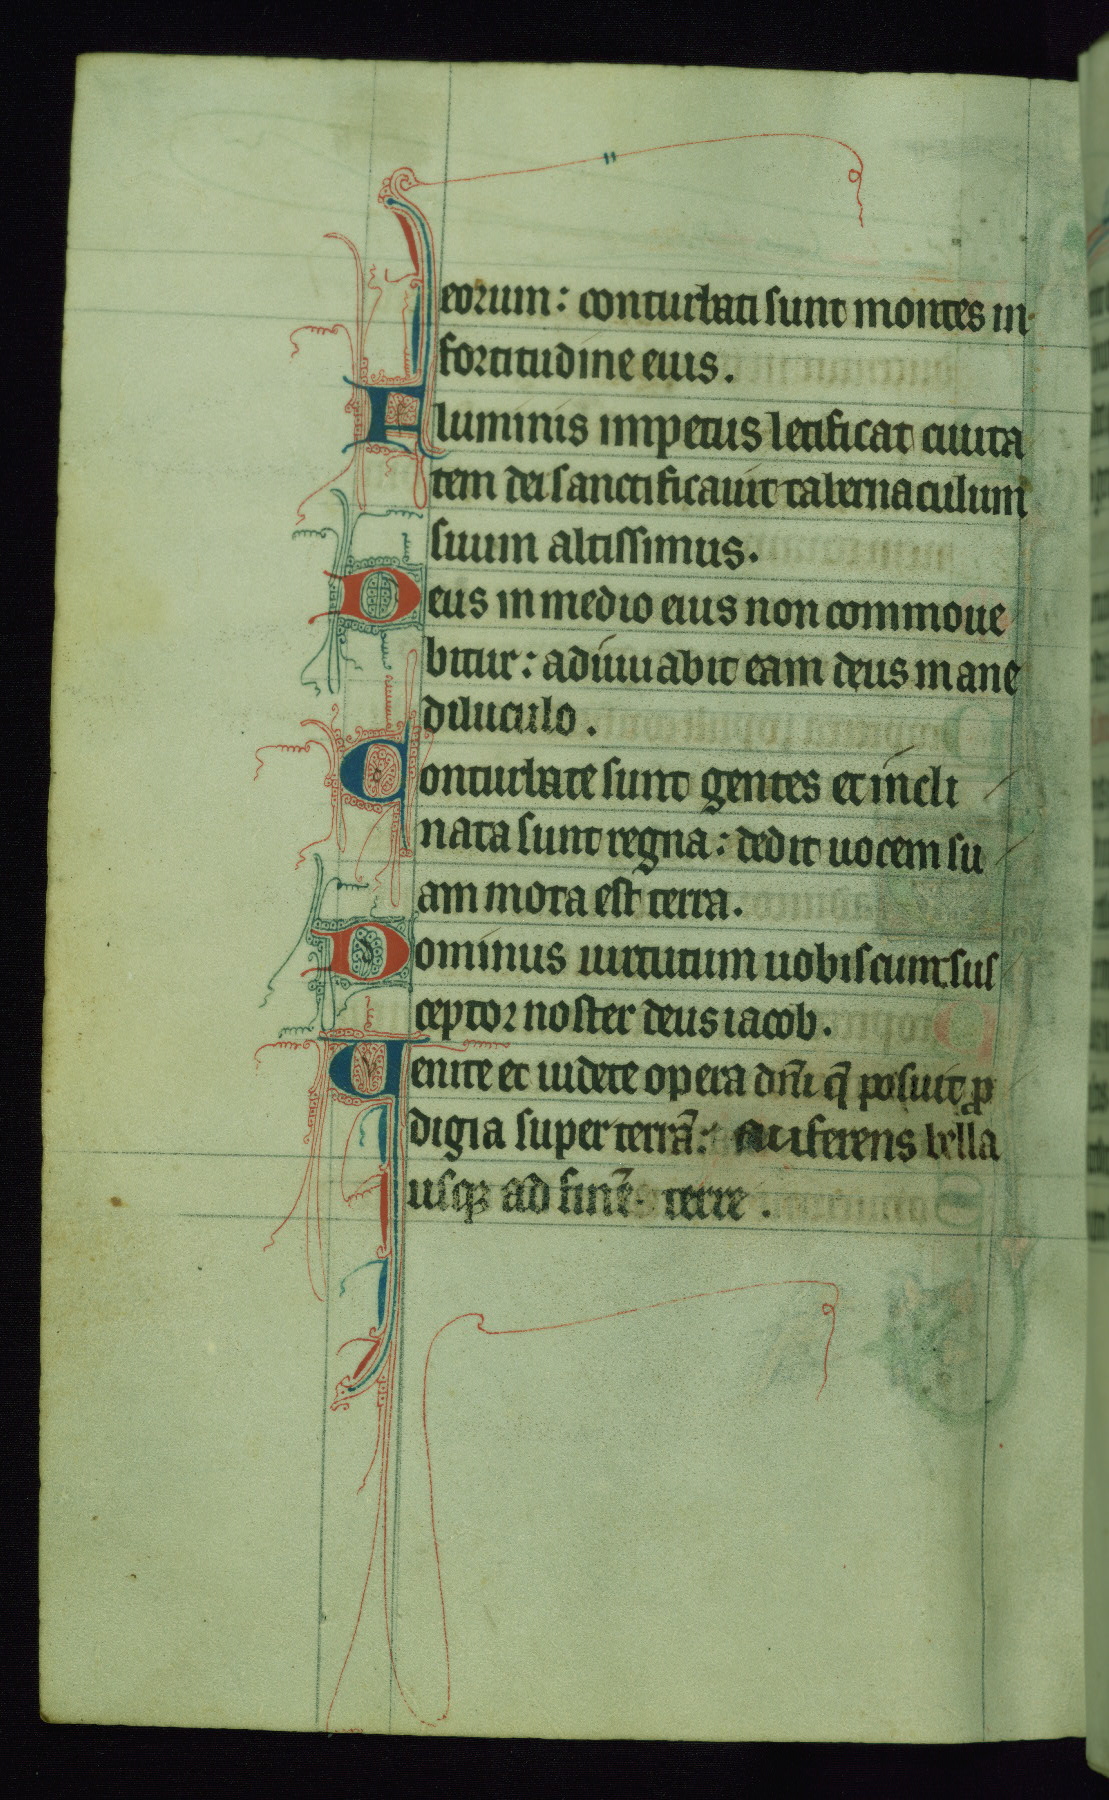 eorum: conturbati sunt montes in
fortitudine eius.
Fluminis impetus letificat ciuita
tem dei sanctificauit tabernaculum
suum altissimus.
Deus in medio eius non commoue
bitur: adiuuabit eam deus mane
diluculo.
Conturbate sunt gentes et incli
nata sunt regna: dedit uocem su
am mota est terra.
Dominus uirtutum uobiscum: sus
ceptor noster deus iacob.
Uenite et uidete opera dñi q̄ posuit ꝓ
digia super terrā: auferens bella
usqꝫ ad finē terre.